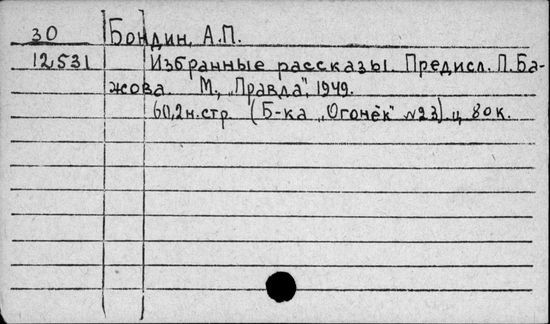 30 Бондин, А.П.
12531 Избранные рассказы. Предисл. П.Ба-
жова. М., „Правда", 1949.
60,2н.стр. (Б-ка „Огонёк" №23). ц. 80к.